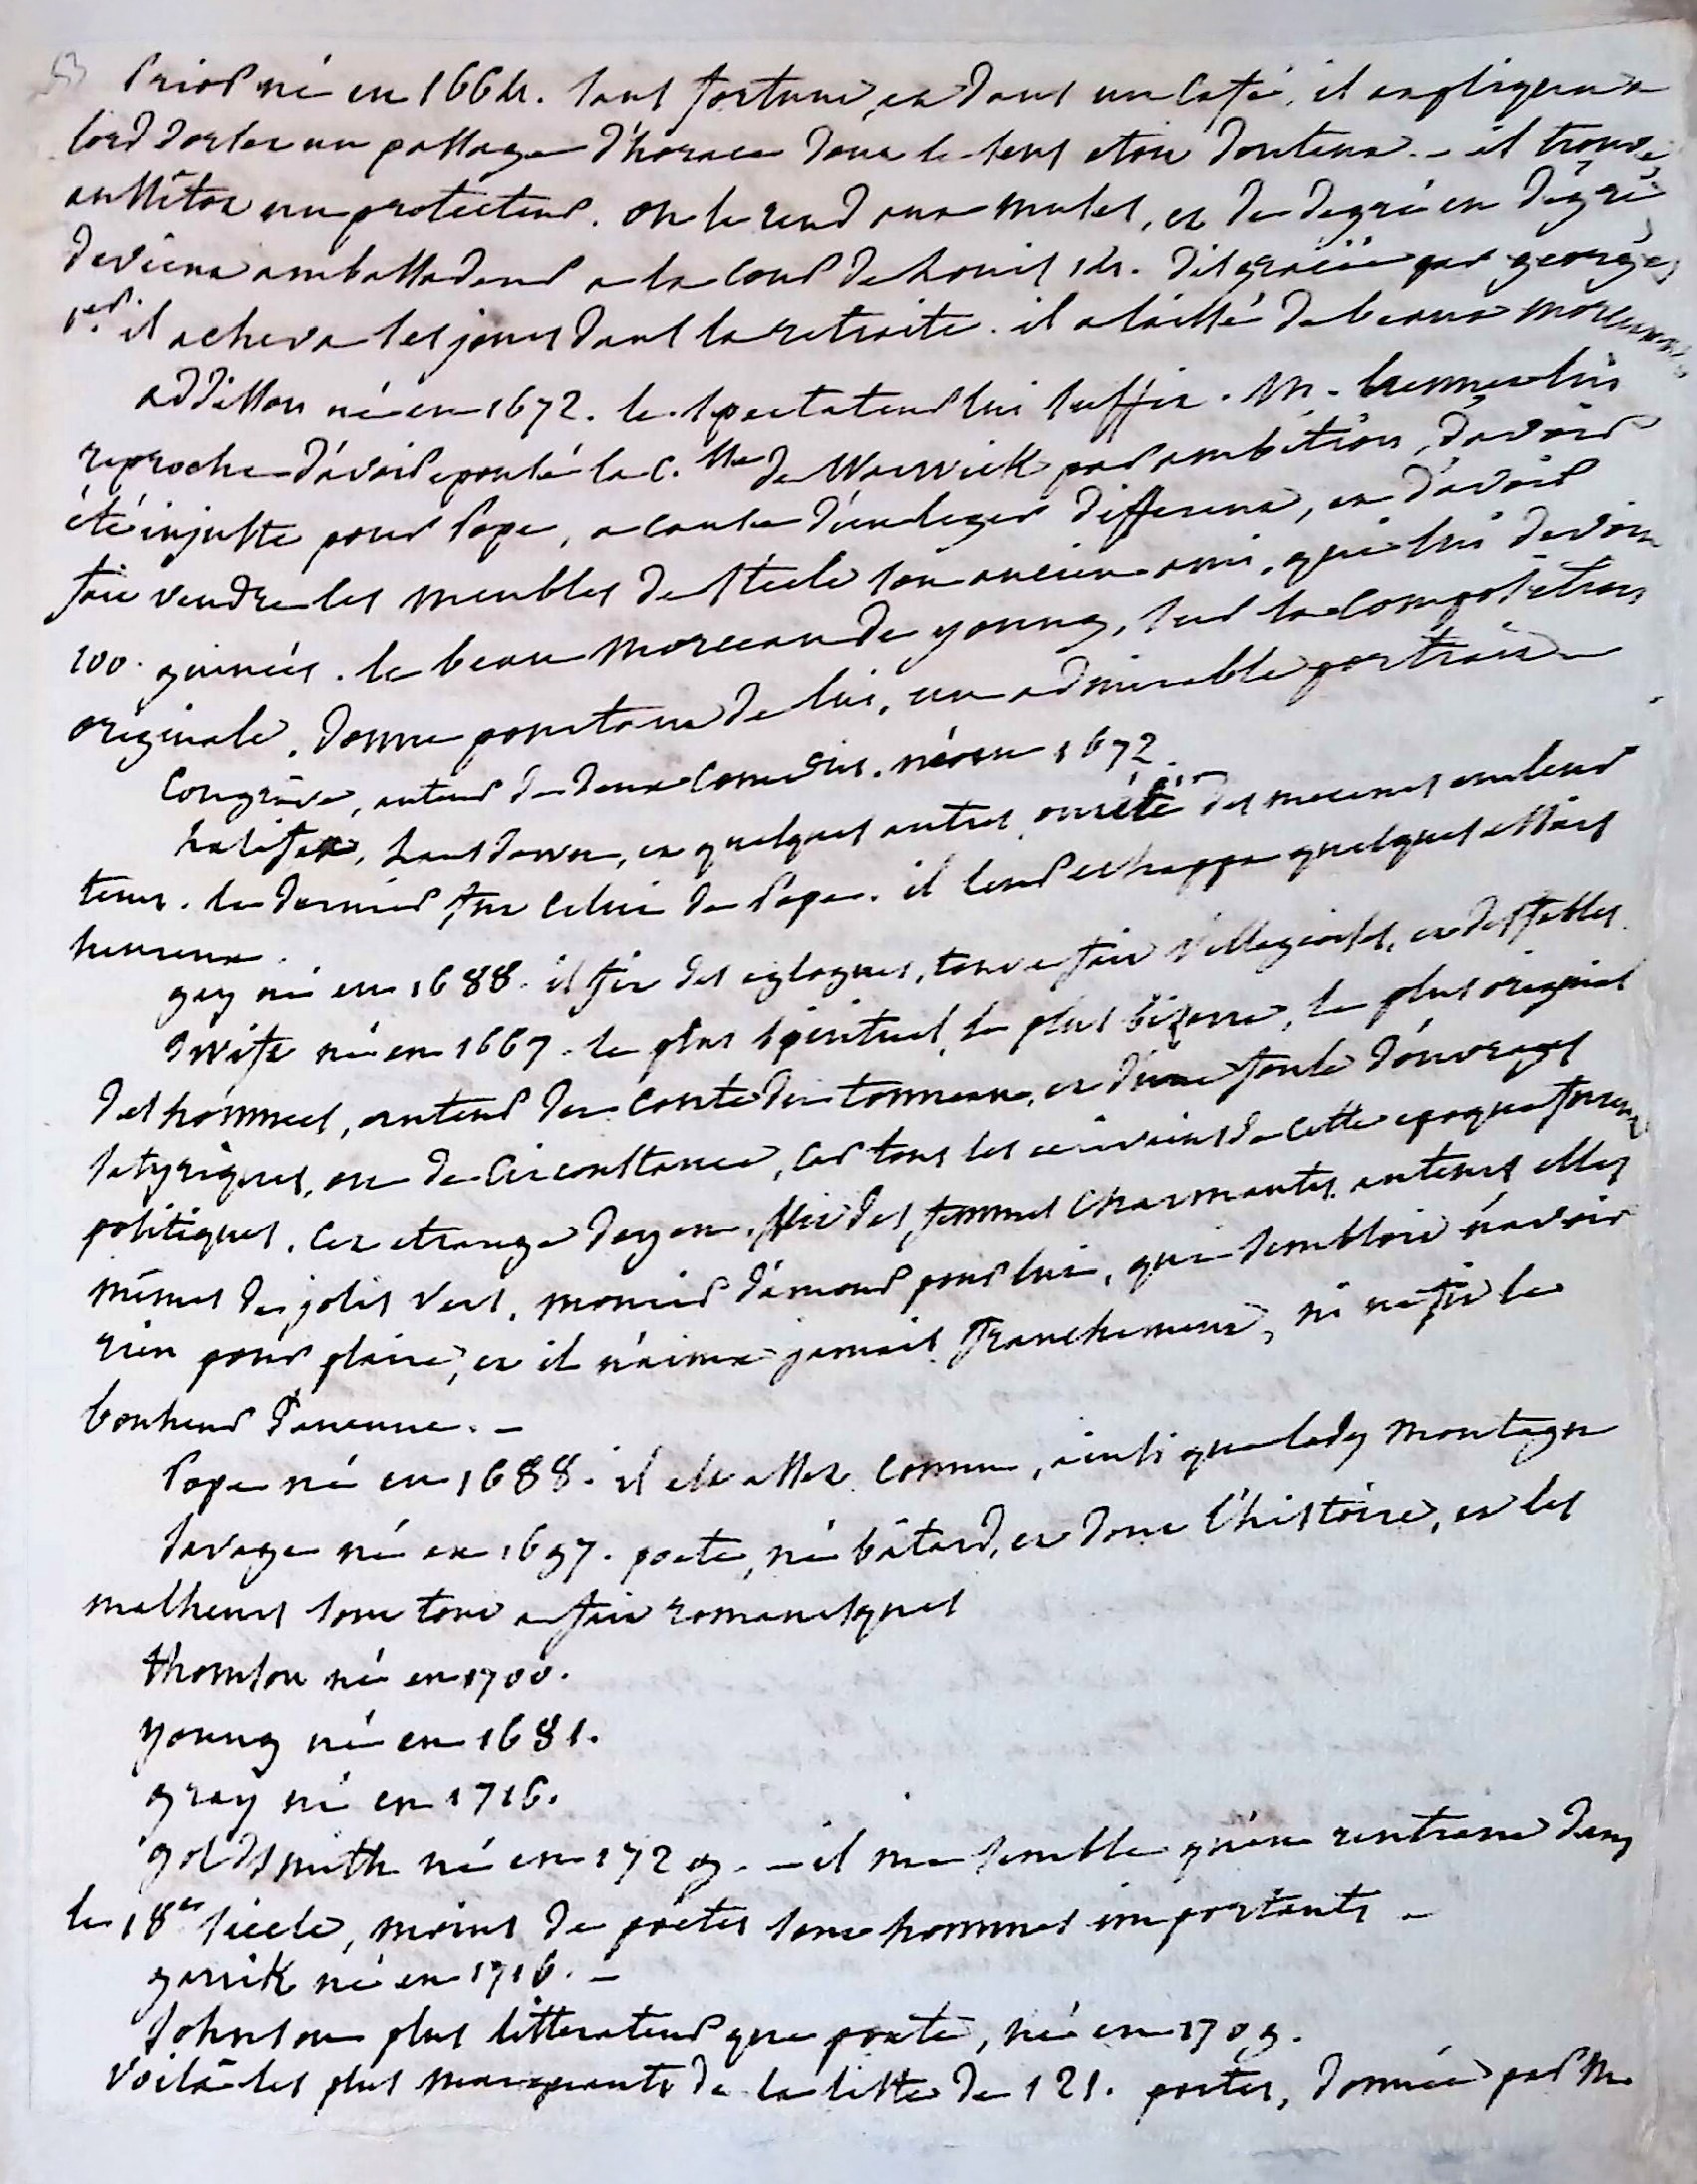 53 Prior né en 1664. sans fortune, et dans un café, il expliqua a
lord dorset un passage d'horace dont le sens etoit douteux. – il trouve
aussitôt un protecteur. on le rend aux muses, et de degré en dégré
devient ambassadeur a la cour de Louis 14. disgracié par georges
1er. il acheva ses jours dans la retraite. il a laissé de beaux morceaux
addisson né en 1672. le spectateur lui suffit. M. hennet lui
reproche d'avoir epousé la C.sse de Warwick par ambition, d'avoir
été injuste pour Pope, a cause d'un leger differend, et d'avoir
fait vendre les meubles de steele son ancien ami, qui lui devoit
100. guinées. le beau morceau de young, sur la composition
originale, donne pourtant de lui, un admirable portrait
Congrève, auteur de deux comedies. né en 1672.
halifax, lansdown, et quelques autres ont été des mecenes en leur
tems. le dernier fut celui de Pope. il leur echappa quelques essais
heureux.
gay né en 1688. il fit des eglogues, tout a fait villageoises, et des fables
Swift né en 1667. le plus spirituel, le plus bizarre, le plus original
des hommes, auteur du conte du tonneau, et d'une foule d'ouvrages
satyriques, ou de circonstance, car tous les ecrivains de cette epoque furent
politiques. cet etrange doyen, fit des femmes charmantes auteurs elles
mêmes de jolis vers, mourir d'amour pour lui, qui sembloit n'avoir
rien pour plaire, et il n'aima jamais franchement, ni ne fit le
bonheur d'aucune. –
Pope né en 1688. il est assez connu, ainsi que lady montagu
Savage né en 1697. poete, né bâtard, et dont l'histoire, et les
malheurs sont tout a fait romanesques
thomson né en 1700.
young né en 1681.
gray né en 1716.
goldsmith né en 1729. – il me semble qu'en rentrant dans
le 18e siecle, moins de poëtes sont hommes importants –
garrik né en 1716. –
Johnson plus litterateur que poete, né en 1709.
voilà les plus marquants de la liste de 121. poetes, donnée par M.